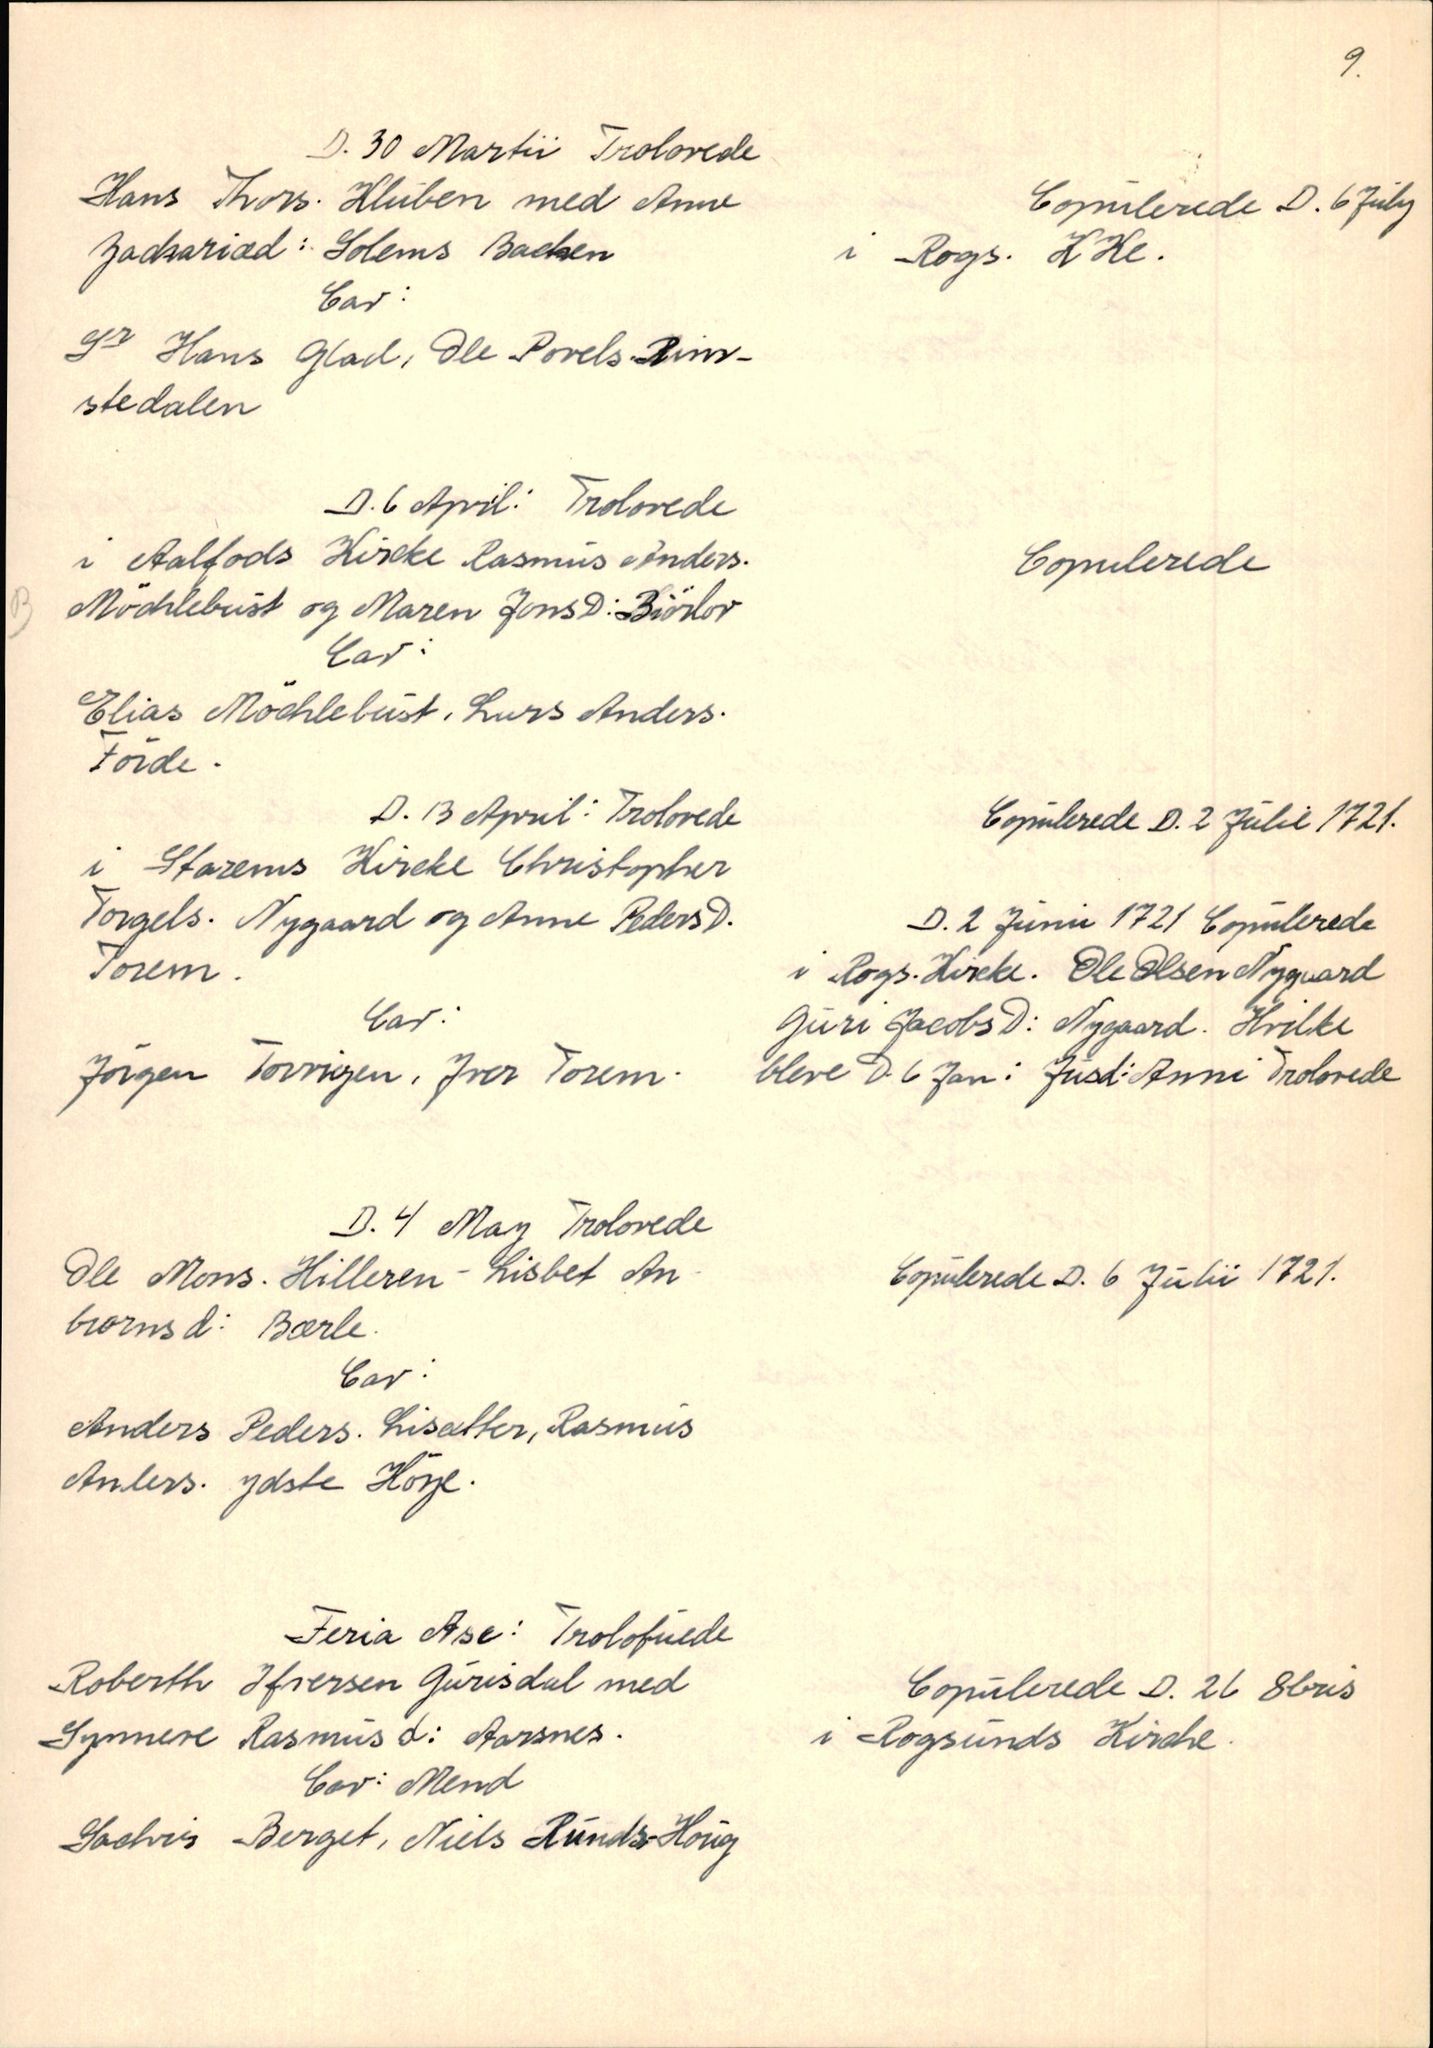 9.
D. 30 Martii Trolovede
Hans Thors. Kluben med Anne
Zachariæd: Solems Backen
Cav:
Sr Hans Glad, Ole Povels. Rim-
stedalen
Copulerede D. 6 July
i Rogs. K Ke.
D. 6 April: Trolovede
i Aalfods Kircke Rasmus Anders.
Möchlebust og Maren JonsD: Biörlov
Cav:
Elias Möchlebust, Lars Anders.
Förde.
Copulerede
B
D. 13 April: Trolovede
i Starems Kircke Christopher
Torgels. Nygaard og Anne PedersD.
Torem.
Cav:
Jörgen Torvigen, Iver Torem.
Copulerede D. 2 Julii 1721.
D. 2 Junii 1721 Copulerede
i Rogs. Kircke. Ole Olsen Nygaard
Guri JacobsD: Nygaard. Hvilke
bleve D. 6 Jan: Jusd: Anni Trolovede
D. 4 May Trolovede
Ole Mons. Hilleren - Lisbet An-
biornsd: Bærle.
Cav:
Anders Peders. Lisætter, Rasmus
Anders. ydste Höye.
Copulerede D. 6 Julii 1721.
Feria Asc: Trolofuede
Roberth Ifversen Gurisdal med
Synneve Rasmusd: Aarsnes.
Cav: Mend
Sachris Berget, Niels Runds-Houg
Copulerede D. 26 8bris
i Rogsunds Kirche.